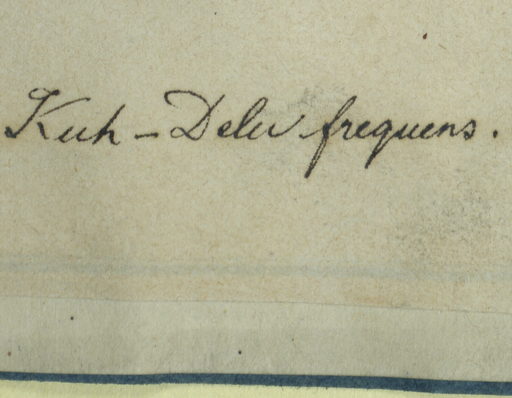 Kuh-Delu frequens.